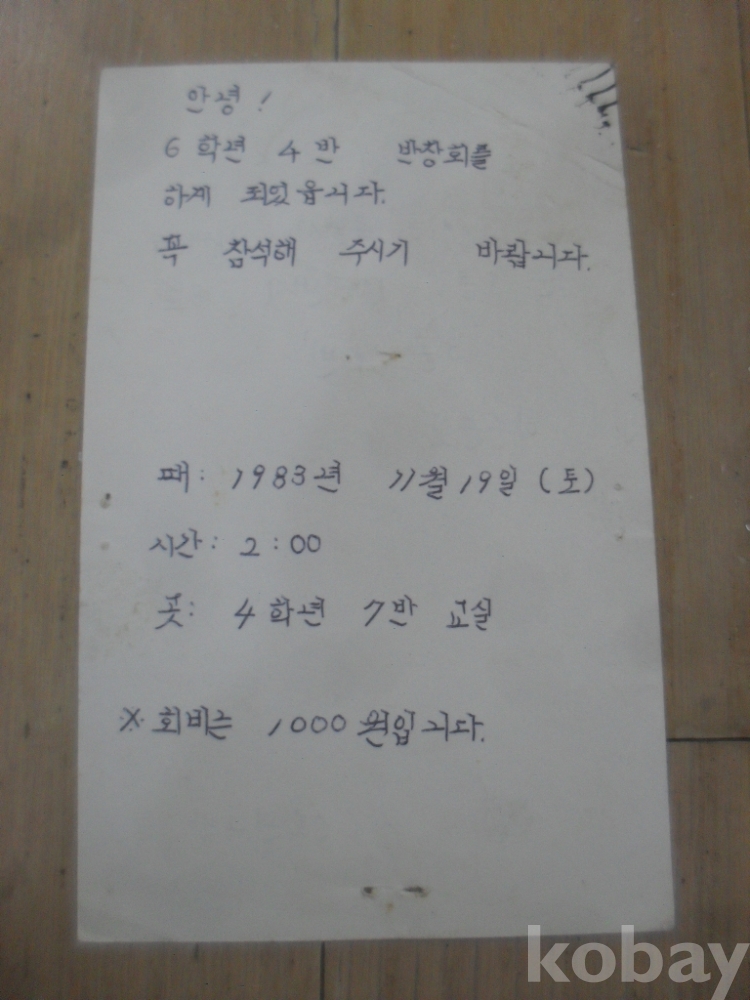 안녕!
6학년 4반 반창회를
하게 되었읍니다.
꼭 참석해 주시기 바랍니다.
때: 1983년 11월 19일 (토)
시간: 2:00
곳: 4학년 7반 교실
※ 회비는 1000원입니다.
kobay